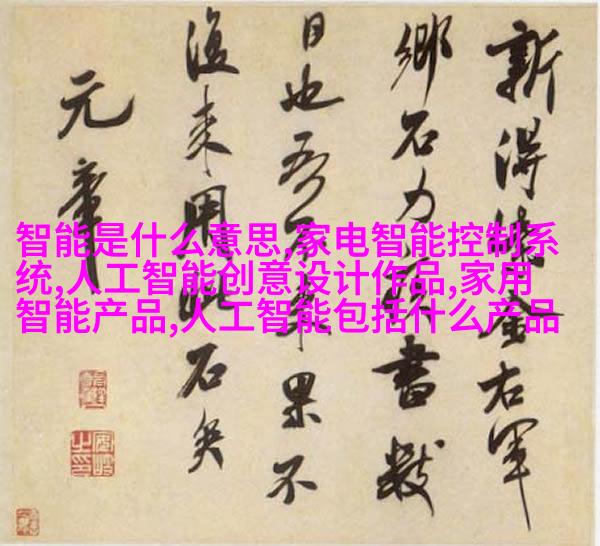 新得紫金右軍
鄉石力疾書數
日也吾不來果不
復來用此石矣
元章
智能是什么意思,家电智能控制系
统,人工智能创意设计作品,家用
智能产品,人工智能包括什么产品